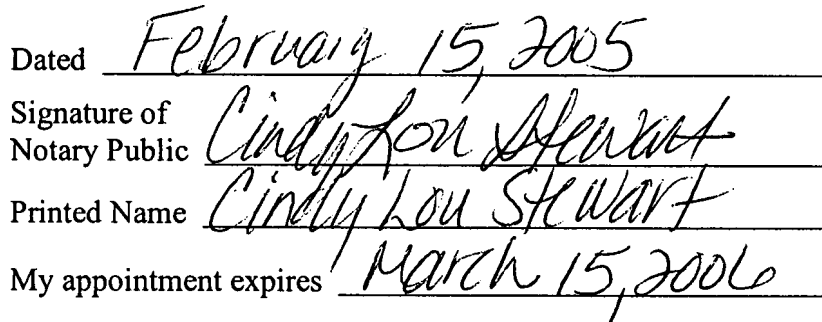 Dated February 15, 2005
Signature of
Notary Public Cindy Lou Stewart
Printed Name Cindy Lou Stewart
My appointment expires March 15, 2006